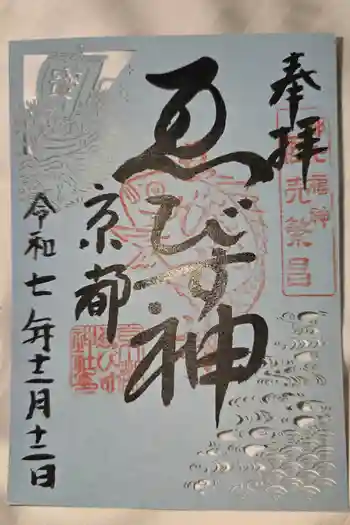 奉拝
商売繁昌
ゑびす神
京都
令和七年十二月十二日